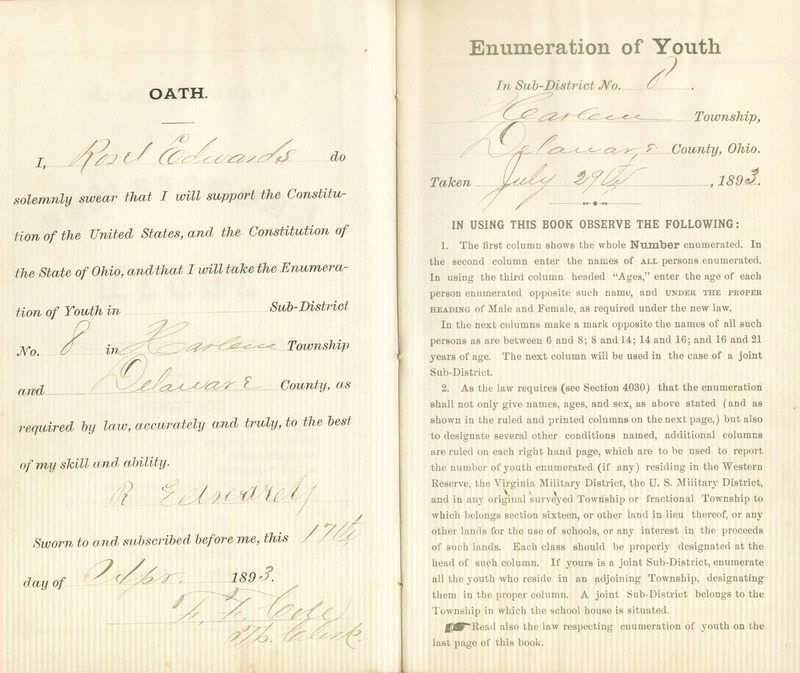 OATH.
I, Rosel Edwards do
solemnly swear that I will support the Constitu-
tion of the United States, and the Constitution of
the State of Ohio, and that I will take the Enumera-
tion of Youth in Sub-District
No. 8 in Harlem Township
and Delaware County, as
required by law, accurately and truly, to the best
of my skill and ability.
R Edwards
Sworn to and subscribed before me, this 17th
day of Apr. 1893.
F. F. Cole
Tp. Clerk.
Enumeration of Youth
In Sub-District No. 8.
Harlem Township,
Delaware County, Ohio.
Taken July 29th, 1893.
IN USING THIS BOOK OBSERVE THE FOLLOWING:
1. The first column shows the whole Number enumerated. In
the second column enter the names of ALL persons enumerated.
In using the third column headed "Ages," enter the age of each
person enumerated opposite such name, and UNDER THE PROPER
HEADING of Male and Female, as required under the new law.
In the next columns make a mark opposite the names of all such
persons as are between 6 and 8; 8 and 14; 14 and 16; and 16 and 21
years of age. The next column will be used in the case of a joint
Sub-District.
2. As the law requires (see Section 4030) that the enumeration
shall not only give names, ages, and sex, as above stated (and as
shown in the ruled and printed columns on the next page,) but also
to designate several other conditions named, additional columns
are ruled on each right hand page, which are to be used to report
the number of youth enumerated (if any) residing in the Western
Reserve, the Virginia Military District, the U. S. Military District,
and in any original surveyed Township or fractional Township to
which belongs section sixteen, or other land in lieu thereof, or any
other lands for the use of schools, or any interest in the proceeds
of such lands. Each class should be properly designated at the
head of such column. If yours is a joint Sub-District, enumerate
all the youth who reside in an adjoining Township, designating
them in the proper column. A joint Sub-District belongs to the
Township in which the school house is situated.
☛Read also the law respecting enumeration of youth on the
last page of this book.